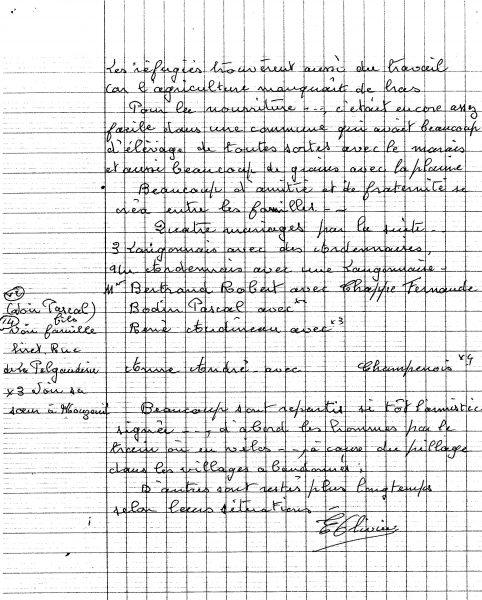 Les réfugiés trouvèrent aussi du travail
car l'agriculture manquait de bras
Pour la nourriture ---, c'était encore assez
facile dans une commune qui avait beaucoup
d'élévage de toutes sortes avec le marais
et aussi beaucoup de grains avec la plaine
Beaucoup d'amitié et de fraternité se
créa entre les familles. --
Quatre mariages par la suite --
3 Langonnais avec des Ardennaises,
Un Ardennais avec une Langonnaise -
Mr Bertrand Robert avec Chappe Fernande
Bodin Pascal avec
René Audineau avec x3
Anne André avec Champenois x4
(Voir Pascal)
fils
Voir famille
Siret, Rue
de la Pelgauderie
x3 Voir sa
sœur à Mouzeuil
Beaucoup sont repartis si tôt l'armistice
signée ---, d'abord les hommes par le
train ou en vélos --, à cause du pillage
dans les villages abandonnés;
D'autres sont restés plus longtemps
selon leurs situations